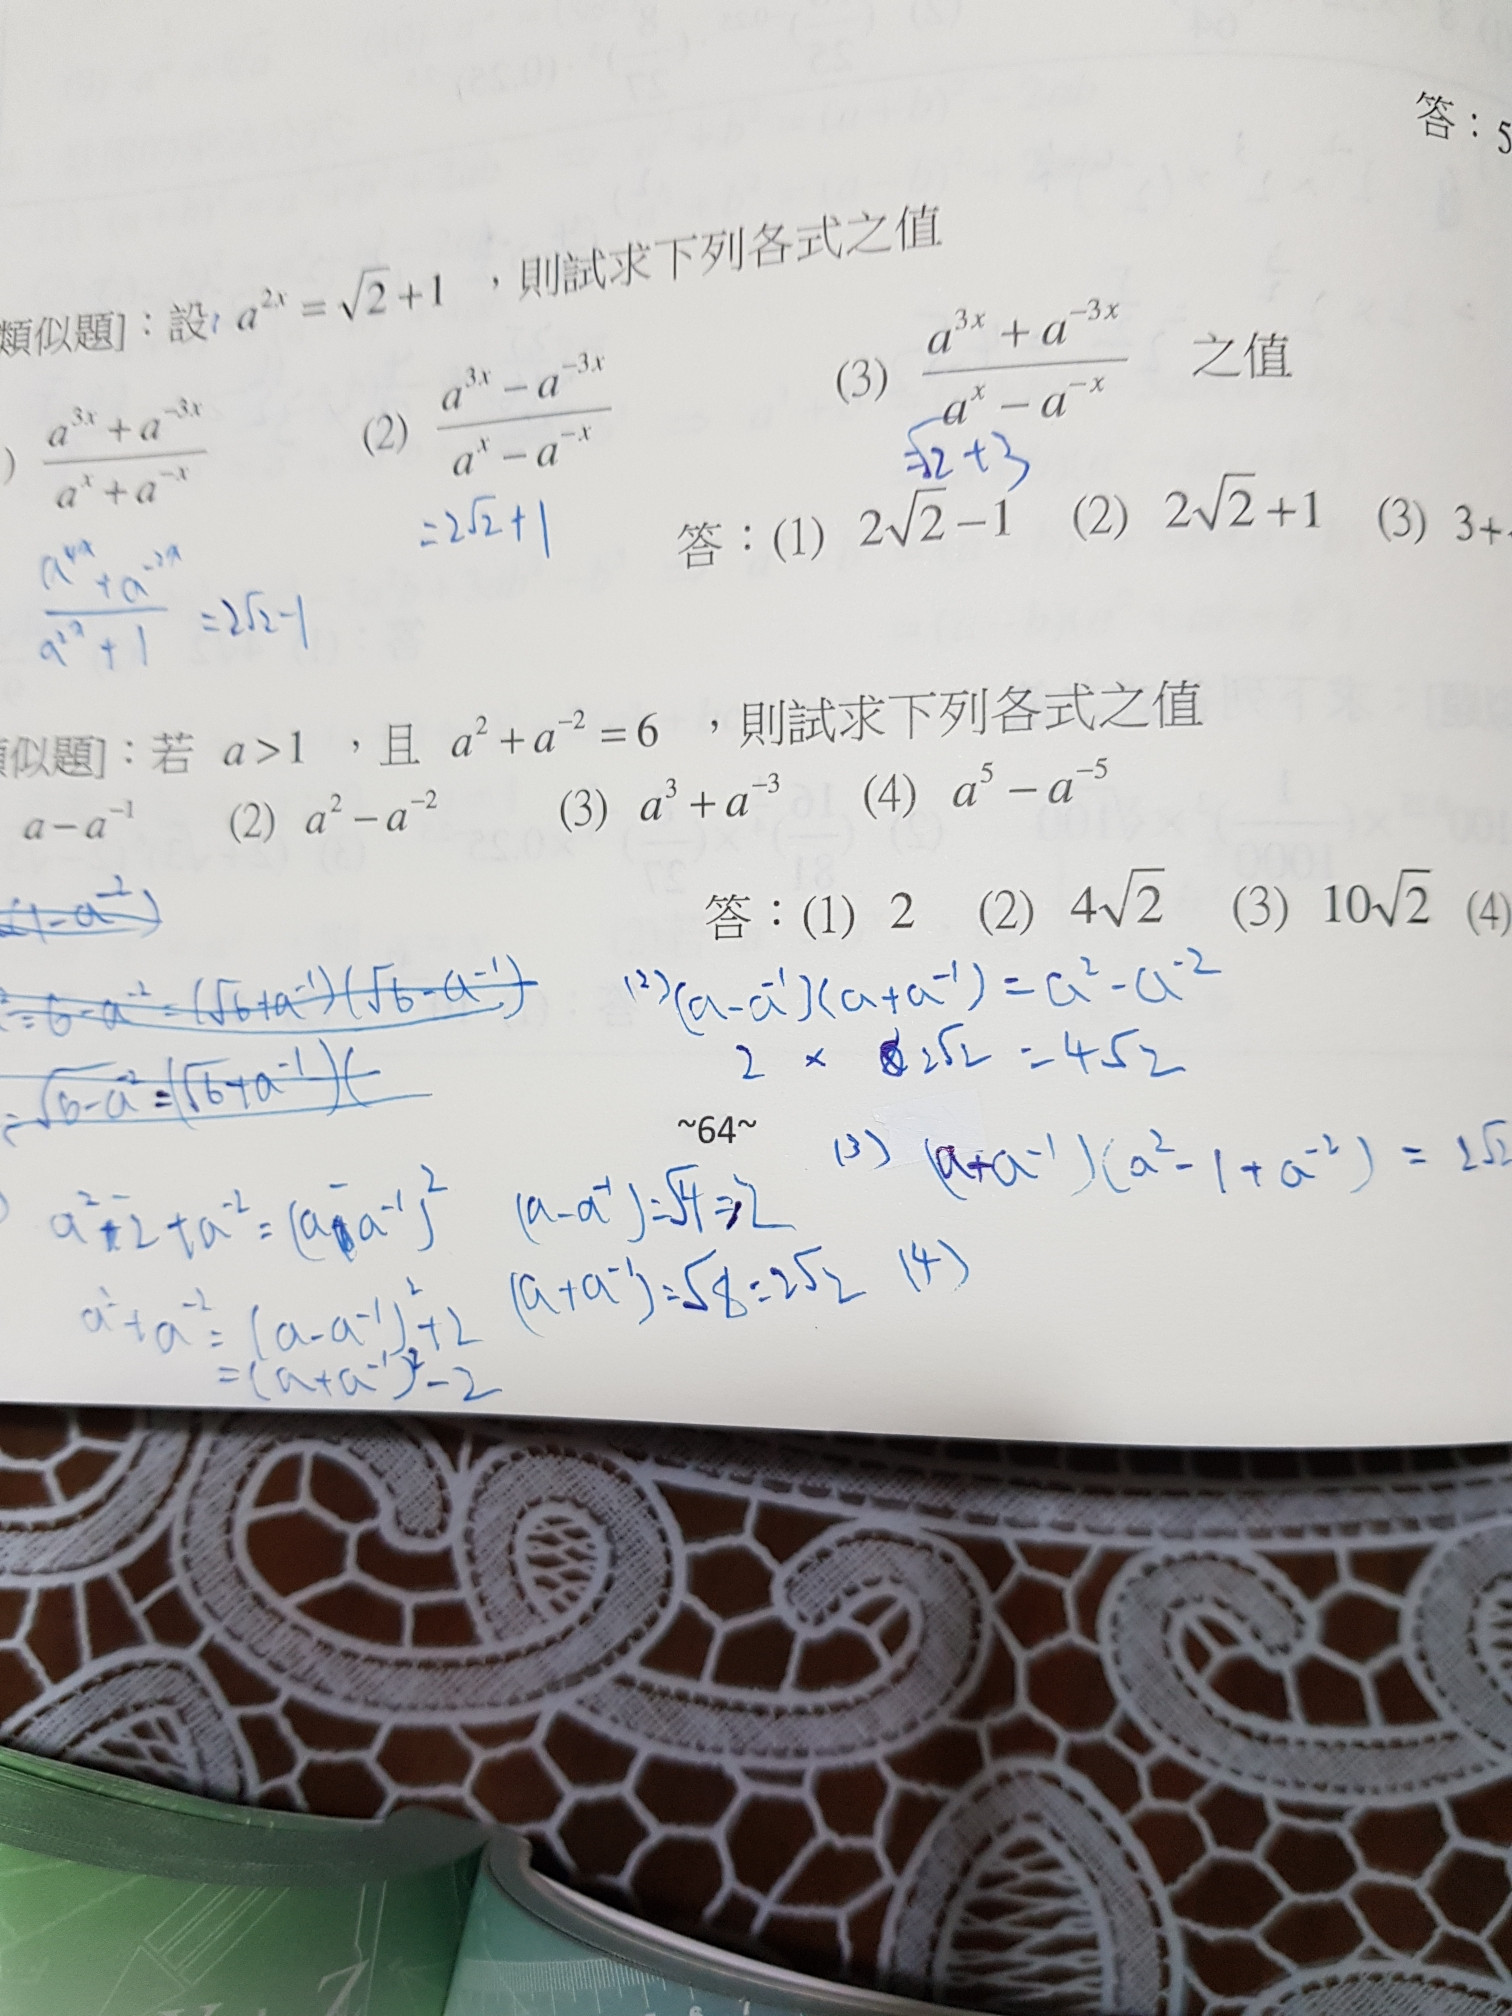 答：5
類似題]：設 a^{2x} = √2+1 ，則試求下列各式之值
) (a^{3x} + a^{-3x})/(a^x + a^{-x}) (2) (a^{3x} − a^{-3x})/(a^x − a^{-x}) (3) (a^{3x} + a^{-3x})/(a^x − a^{-x}) 之值
=√2+3
=2√2+1
答：(1) 2√2−1 (2) 2√2+1 (3) 3+
(a^{4x}+a^{-2x})/(a^{2x}+1) =2√2-1
似題]：若 a>1 ，且 a²+a^{-2}=6 ，則試求下列各式之值
a−a^{-1} (2) a²−a^{-2} (3) a³+a^{-3} (4) a⁵−a^{-5}
答：(1) 2 (2) 4√2 (3) 10√2 (4)
(1-a^{-2})
²=6-a^{-2}=(√6+a^{-1})(√6-a^{-1})
=√6-a^{-2}=(√6+a^{-1})(
(2)(a-a^{-1})(a+a^{-1})=a²-a^{-2}
2 × 2√2 =4√2
~64~
(3) (a+a^{-1})(a²-1+a^{-2}) = 2√2
) a²-2+a^{-2}=(a-a^{-1})² (a-a^{-1})=√4=2
a²+a^{-2}=(a-a^{-1})²+2 (a+a^{-1})=√8=2√2 (4)
=(a+a^{-1})²-2